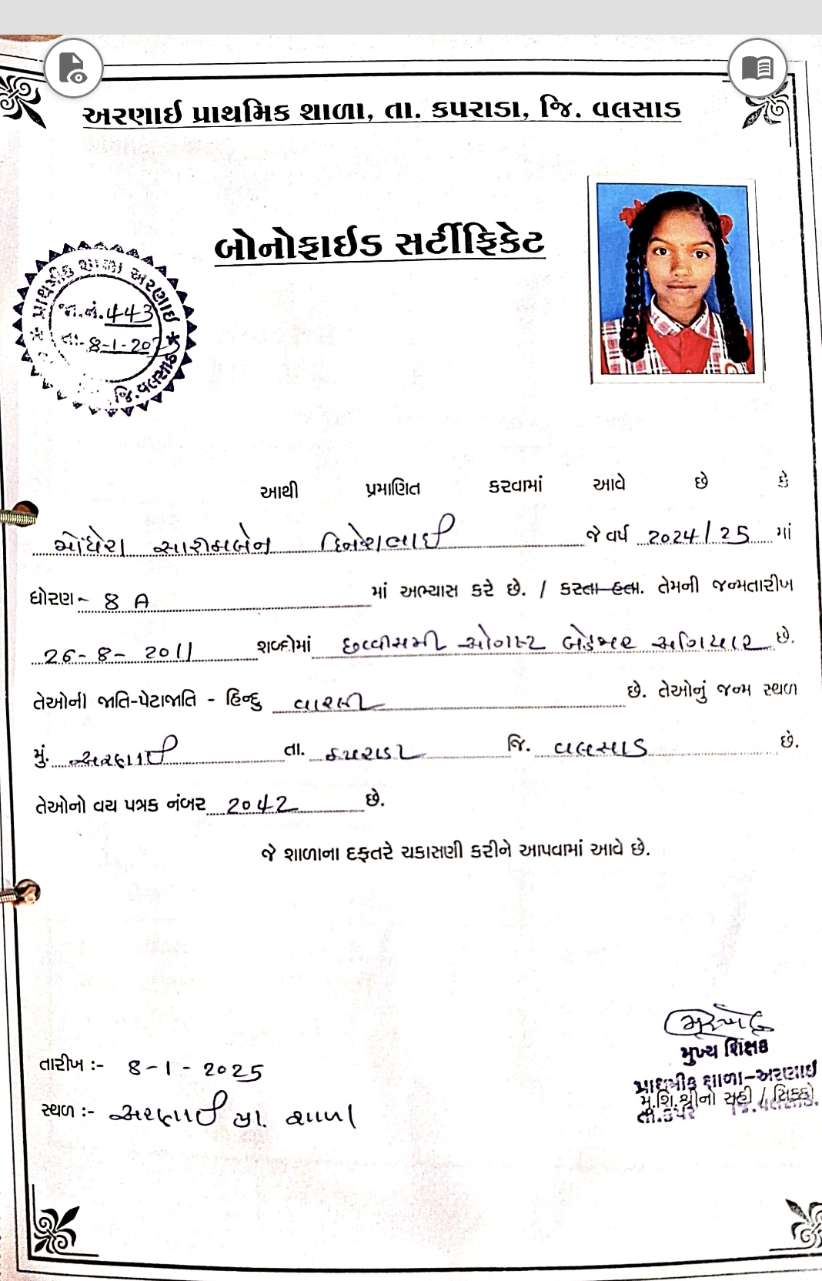 અરણાઈ પ્રાથમિક શાળા, તા. કપરાડા, જિ. વલસાડ
બોનોફાઈડ સર્ટીફિકેટ
પ્રાથમીક શાળા અરણાઈ
જા.નં. 443
તા. 8-1-20
જિ. વલસાડ
આથી પ્રમાણિત કરવામાં આવે છે કે
દિનેશભાઈ જે વર્ષ 2024/25 માં
ધોરણ - 8 A માં અભ્યાસ કરે છે. / કરતા હતા. તેમની જન્મતારીખ
26-8-2011 શબ્દોમાં છવ્વીસમી ઓગસ્ટ બેહજાર અગિયાર છે.
તેઓની જાતિ-પેટાજાતિ - હિન્દુ વારલી છે. તેઓનું જન્મ સ્થળ
મું. અરણાઈ તા. કપરાડા જિ. વલસાડ છે.
તેઓનો વય પત્રક નંબર 2042 છે.
જે શાળાના દફતરે ચકાસણી કરીને આપવામાં આવે છે.
તારીખ :- 8-1-2025
સ્થળ :- અરણાઈ પ્રા. શાળા
મુખ્ય શિક્ષક
પ્રાથમીક શાળા-અરણાઈ
મુ.શિ.શ્રીનો સહી / સિક્કો
જિ.વલસાડ.